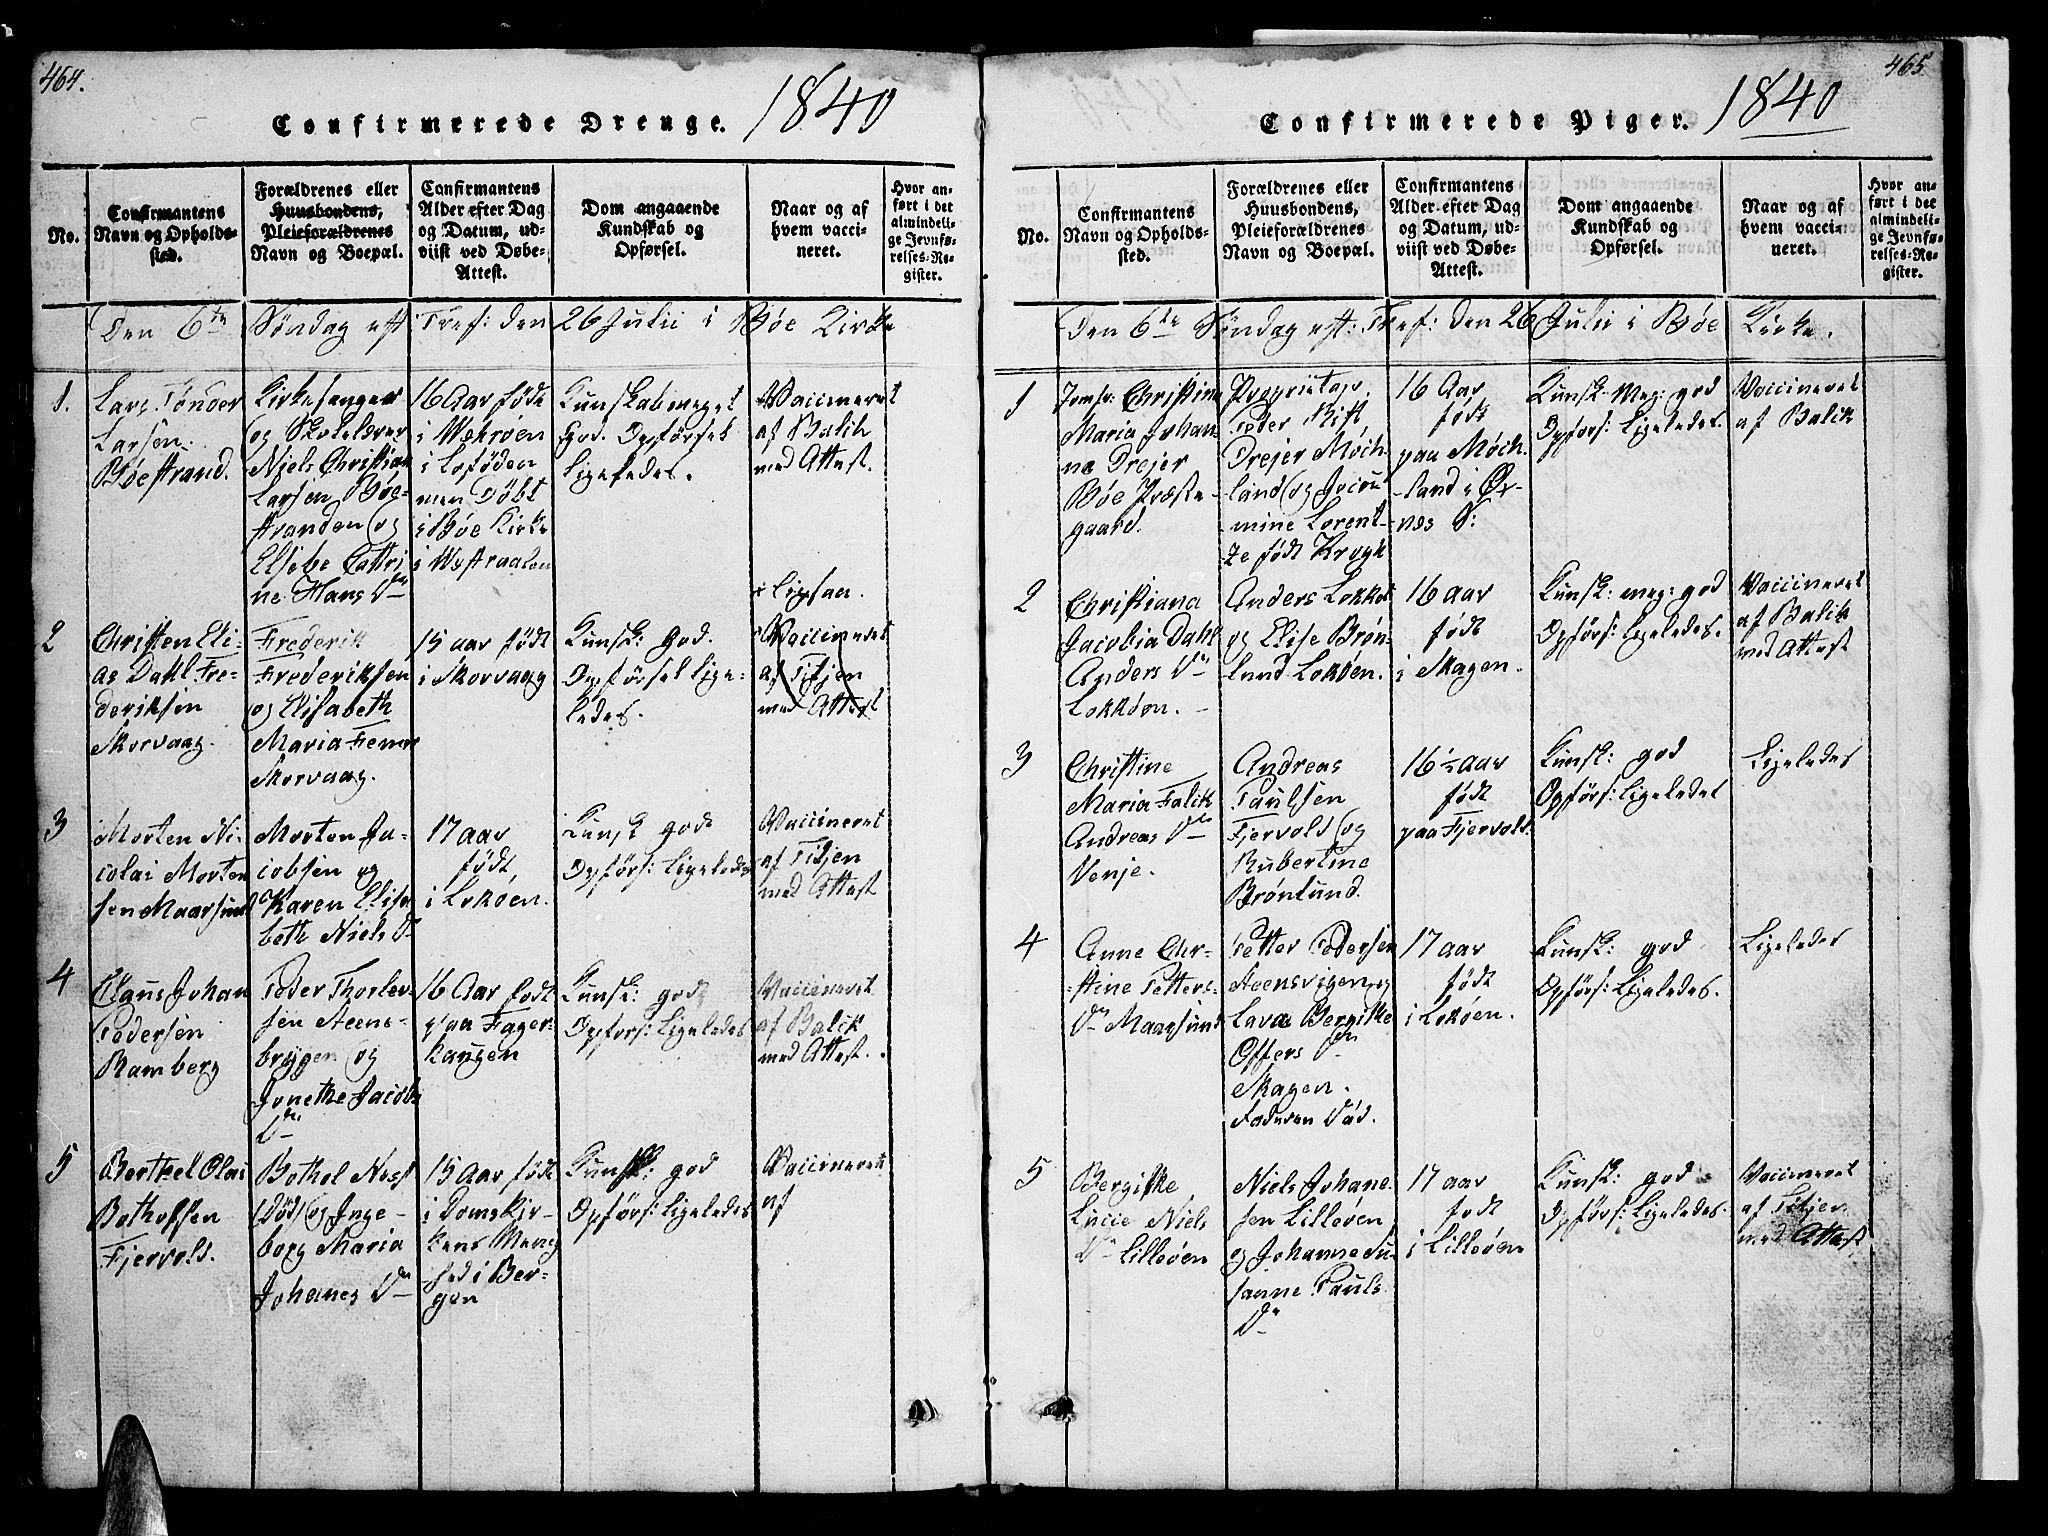 464.
Confirmerede Drenge. 1840
No.
Confirmantens
Navn og Opholds-
sted.
Forældrenes eller
Huusbondens,
Pleieforældrenes
Navn og Boepæl.
Confirmantens
Alder efter Dag
og Datum, ud-
viist ved Døbe-
Attest.
Dom angaaende
Kundskab og
Opførsel.
Naar og af
hvem vacci-
neret.
Hvor an-
ført i det
almindeli-
ge Jevnfø-
relses-Re-
gister.
Den 6te Søndag eft Tref: den 26 Julii i Bøe Kirke
1.
Lars Tønder
Larsen
Bøestrand.
Kirkesanger
og Skolelærer
Niels Christian
Larsen Bøe-
stranden og
Elsebe Cathri
ne Hans Dn
16 Aar född
i Wærøen
i Lofoden
men Døbt
i Bøe Kirke
i Westraalen
Kunskab meget
god. Opførsel
Ligeledes.
Vaccineret
af Balik
med Attest.
2
Christen Eli-
as Dahl Fre-
deriksen
Skorvaag.
Frederik
Frederiksen
og Elisabeth
Maria
Skorvaag.
15 aar født
i Skorvaag
Kunsk: god.
Opførsel lige-
ledes.
Vaccineret
af Titjen
med Attest
3
Morten Ni-
colai Morten
sen Maarsund
Morten Ja-
cobsen og
Karen Elisa
beth Niels D
17 aar
født,
i Lokøen.
Kunsk god
Opførs: Ligeledes
Vaccineret
af Titjen
med Attest
4
Claus Johan
Pedersen
Ramberg
Peder Thorlev-
sen Steens-
bryggen og
Jonethe Jacobs
Dn
16 Aar født
paa Fager-
haugen
Kunsk: god
Opførs: Ligeledes
Vaccineret
af Balik
med Attest.
5
Berthel Olai
Bothofsen
Fjervold.
Bothel Ness
(Død) og Inge-
borg Maria
Johanes Dn
15 Aar født
i Domskir-
kens Menig
hed i Ber-
gen
Kunsk: god
Opførs: Ligeledes
Vaccineret
af
465
Confirmerede Piger. 1840
No.
Confirmantens
Navn og Opholds-
sted.
Forældrenes eller
Huusbondens,
Pleieforældrenes
Navn og Boepæl.
Confirmantens
Alder efter Dag
og Datum, ud-
viist ved Døbe-
Attest.
Dom angaaende
Kundskab og
Opførsel.
Naar og af
hvem vacci-
neret.
Hvor an-
ført i det
almindeli-
ge Jevnfø-
relses-Re-
gister.
Den 6te Søndag eft: Tref: den 26 Julii i Bøe Kirke.
1
Jomfr: Christine
Maria Johan
na Drejer
Bøe Præste-
gaard.
Proprietair
Peder Kist
Drejer Moch
land og
mine Lorent-
ze født Krogh
16 Aar
født
paa Moch
-land i Øx-
nes S:
Kunsk: Meg: god
Opførs: Ligeledes.
Vaccineret
af Balik
2
Christiana
Jacobia Dahl
Anders Dn
Lokkøen.
Anders Lokkøe
og Elise Brøn-
lund Lokøen.
16 aar
født
i Skagen.
Kunsk: meg: god
Opførs: Ligeledes.
Vaccineret
af Balik
med Attest
3
Christine
Maria Falik
Andreas Dn
Venje.
Andreas
Paulsen
Fjervold og
Rubertine
Brønlund.
16½ aar
født
paa Fjervold.
Kunsk: god
Opførs: Ligeledes
Ligeledes
4
Anne Chr-
stine Petters-
Dn Maarsund
Petter Pedersen
Steensvigen og
Lava Bergithe
Offers Dn
Skagen.
Faderen Død.
17 aar
født
i Lokøen.
Kunsk: god
Opførs: Ligeledes.
Ligeledes
5
Bergithe
Lucie Niels
Dn Lilleøen
Niels Johane
sen Lilleøen
og Johanne Su-
sanne Pauls
Dn
17 aar
født
i Lilleøen
Kunsk: god
Opførs: Ligeledes.
Vaccineret
af Titjen
med Attest